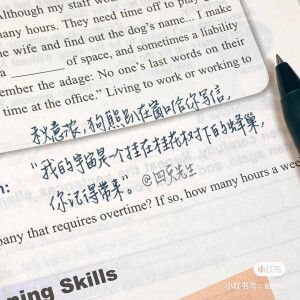 Although my staff wo
any hours. They need time off to play g
e wife and find out the dog's name... I make
a ________ of space, and sometimes a liability
ember the adage: No one's last words on their
time at the office." Living to work or working to
秋意浓，狗熊趴在窗口给你写信，
"我的宇宙是一个挂在桂花树下的蜂巢，
n:
你记得带来"。@四矢先生
pany that requires overtime? If so, how many hours a wee
ning Skills
小红书
小红书号：